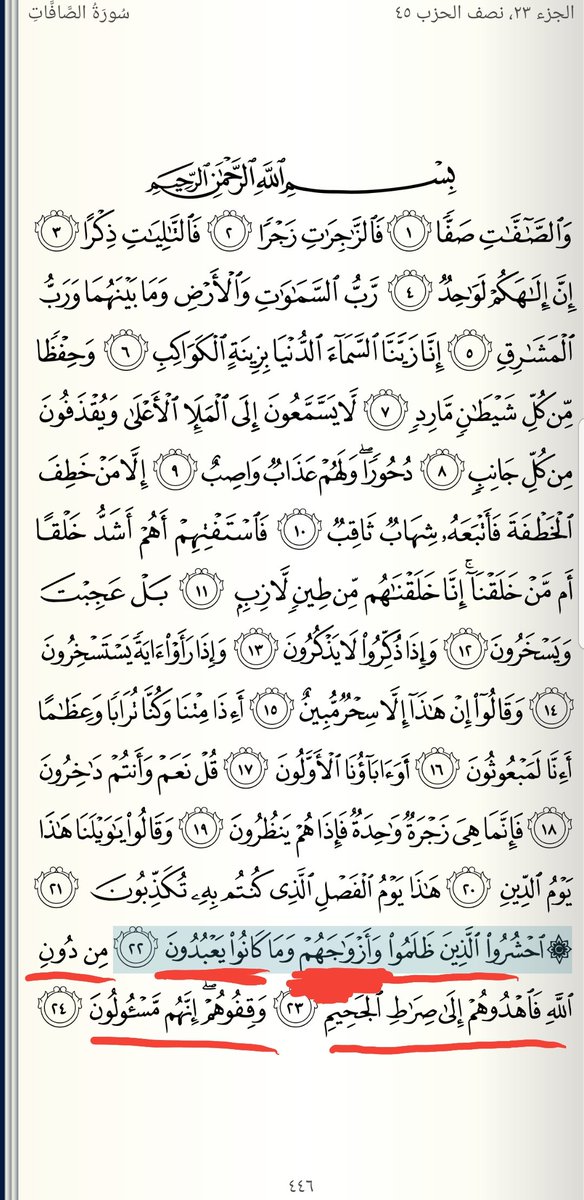 الجزء ٢٣، نصف الحزب ٤٥ سُورَةُ الصَّافَّاتِ
بِسْمِ ٱللَّهِ ٱلرَّحْمَٰنِ ٱلرَّحِيمِ
وَٱلصَّٰٓفَّٰتِ صَفًّا ١ فَٱلزَّٰجِرَٰتِ زَجْرًا ٢ فَٱلتَّٰلِيَٰتِ ذِكْرًا ٣
إِنَّ إِلَٰهَكُمْ لَوَٰحِدٌ ٤ رَّبُّ ٱلسَّمَٰوَٰتِ وَٱلْأَرْضِ وَمَا بَيْنَهُمَا وَرَبُّ
ٱلْمَشَٰرِقِ ٥ إِنَّا زَيَّنَّا ٱلسَّمَآءَ ٱلدُّنْيَا بِزِينَةٍ ٱلْكَوَاكِبِ ٦ وَحِفْظًا
مِّن كُلِّ شَيْطَٰنٍ مَّارِدٍ ٧ لَّا يَسَّمَّعُونَ إِلَى ٱلْمَلَإِ ٱلْأَعْلَىٰ وَيُقْذَفُونَ
مِن كُلِّ جَانِبٍ ٨ دُحُورًا ۖ وَلَهُمْ عَذَابٌ وَاصِبٌ ٩ إِلَّا مَنْ خَطِفَ
ٱلْخَطْفَةَ فَأَتْبَعَهُۥ شِهَابٌ ثَاقِبٌ ١٠ فَٱسْتَفْتِهِمْ أَهُمْ أَشَدُّ خَلْقًا
أَم مَّنْ خَلَقْنَآ ۚ إِنَّا خَلَقْنَٰهُم مِّن طِينٍ لَّازِبٍ ١١ بَلْ عَجِبْتَ
وَيَسْخَرُونَ ١٢ وَإِذَا ذُكِّرُوا۟ لَا يَذْكُرُونَ ١٣ وَإِذَا رَأَوْا۟ ءَايَةً يَسْتَسْخِرُونَ
١٤ وَقَالُوٓا۟ إِنْ هَٰذَآ إِلَّا سِحْرٌ مُّبِينٌ ١٥ أَءِذَا مِتْنَا وَكُنَّا تُرَابًا وَعِظَٰمًا
أَءِنَّا لَمَبْعُوثُونَ ١٦ أَوَءَابَآؤُنَا ٱلْأَوَّلُونَ ١٧ قُلْ نَعَمْ وَأَنتُمْ دَٰخِرُونَ
١٨ فَإِنَّمَا هِىَ زَجْرَةٌ وَٰحِدَةٌ فَإِذَا هُمْ يَنظُرُونَ ١٩ وَقَالُوا۟ يَٰوَيْلَنَا هَٰذَا
يَوْمُ ٱلدِّينِ ٢٠ هَٰذَا يَوْمُ ٱلْفَصْلِ ٱلَّذِى كُنتُم بِهِۦ تُكَذِّبُونَ ٢١
۞ ٱحْشُرُوا۟ ٱلَّذِينَ ظَلَمُوا۟ وَأَزْوَٰجَهُمْ وَمَا كَانُوا۟ يَعْبُدُونَ ٢٢ مِن دُونِ
ٱللَّهِ فَٱهْدُوهُمْ إِلَىٰ صِرَٰطِ ٱلْجَحِيمِ ٢٣ وَقِفُوهُمْ ۖ إِنَّهُم مَّسْـُٔولُونَ ٢٤
٤٤٦